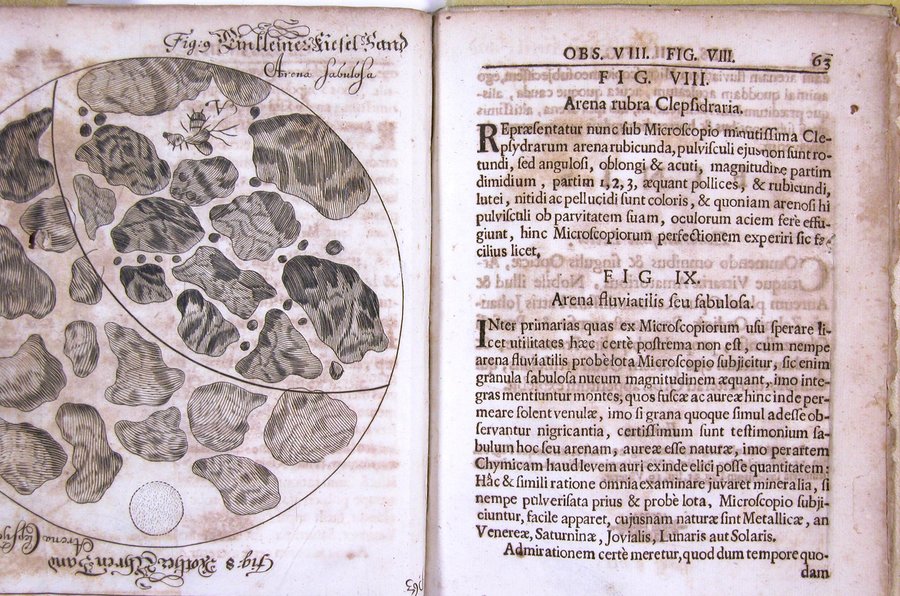 Fig: 9 Ein kleiner Kiesel Sand
Arena sabulosa
Arena Clepsy
Fig: 8 Rother Uhren Sand
63
OBS. VIII. FIG. VIII. 63
FIG. VIII.
Arena rubra Clepsidraria.
REpræsentatur nunc sub Microscopio minutissima Cle-
psydrarum arena rubicunda, pulvisculi ejus non sunt ro-
tundi, sed angulosi, oblongi & acuti, magnitudine partim
dimidium, partim 1, 2, 3, æquant pollices, & rubicundi,
lutei, nitidi ac pellucidi sunt coloris, & quoniam arenosi hi
pulvisculi ob parvitatem suam, oculorum aciem ferè effu-
giunt, hinc Microscopiorum perfectionem experiri sic fa-
cilius licet.
FIG IX.
Arena fluviatilis seu sabulosa.
INter primarias quas ex Microscopiorum usu sperare li-
cet utilitates hæc certè postrema non est, cum nempe
arena fluviatilis probè lota Microscopio subjicitur, sic enim
granula sabulosa nucum magnitudinem æquant, imo inte-
gras mentiuntur montes, quos fuscæ ac aureæ hinc inde per-
meare solent venulæ, imo si grana quoque simul adesse ob-
servantur nigricantia, certissimum sunt testimonium sa-
bulum hoc seu arenam, aureæ esse naturæ, imo per artem
Chymicam haud levem auri exinde elici posse quantitatem:
Hâc & simili ratione omnia examinare juvaret mineralia, si
nempe pulverisata prius & probè lota, Microscopio subji-
ciuntur, facile apparet, cujusnam naturæ sint Metallicæ, an
Venereæ, Saturninæ, Jovialis, Lunaris aut Solaris.
Admirationem certè meretur, quod dum tempore quo-
dam